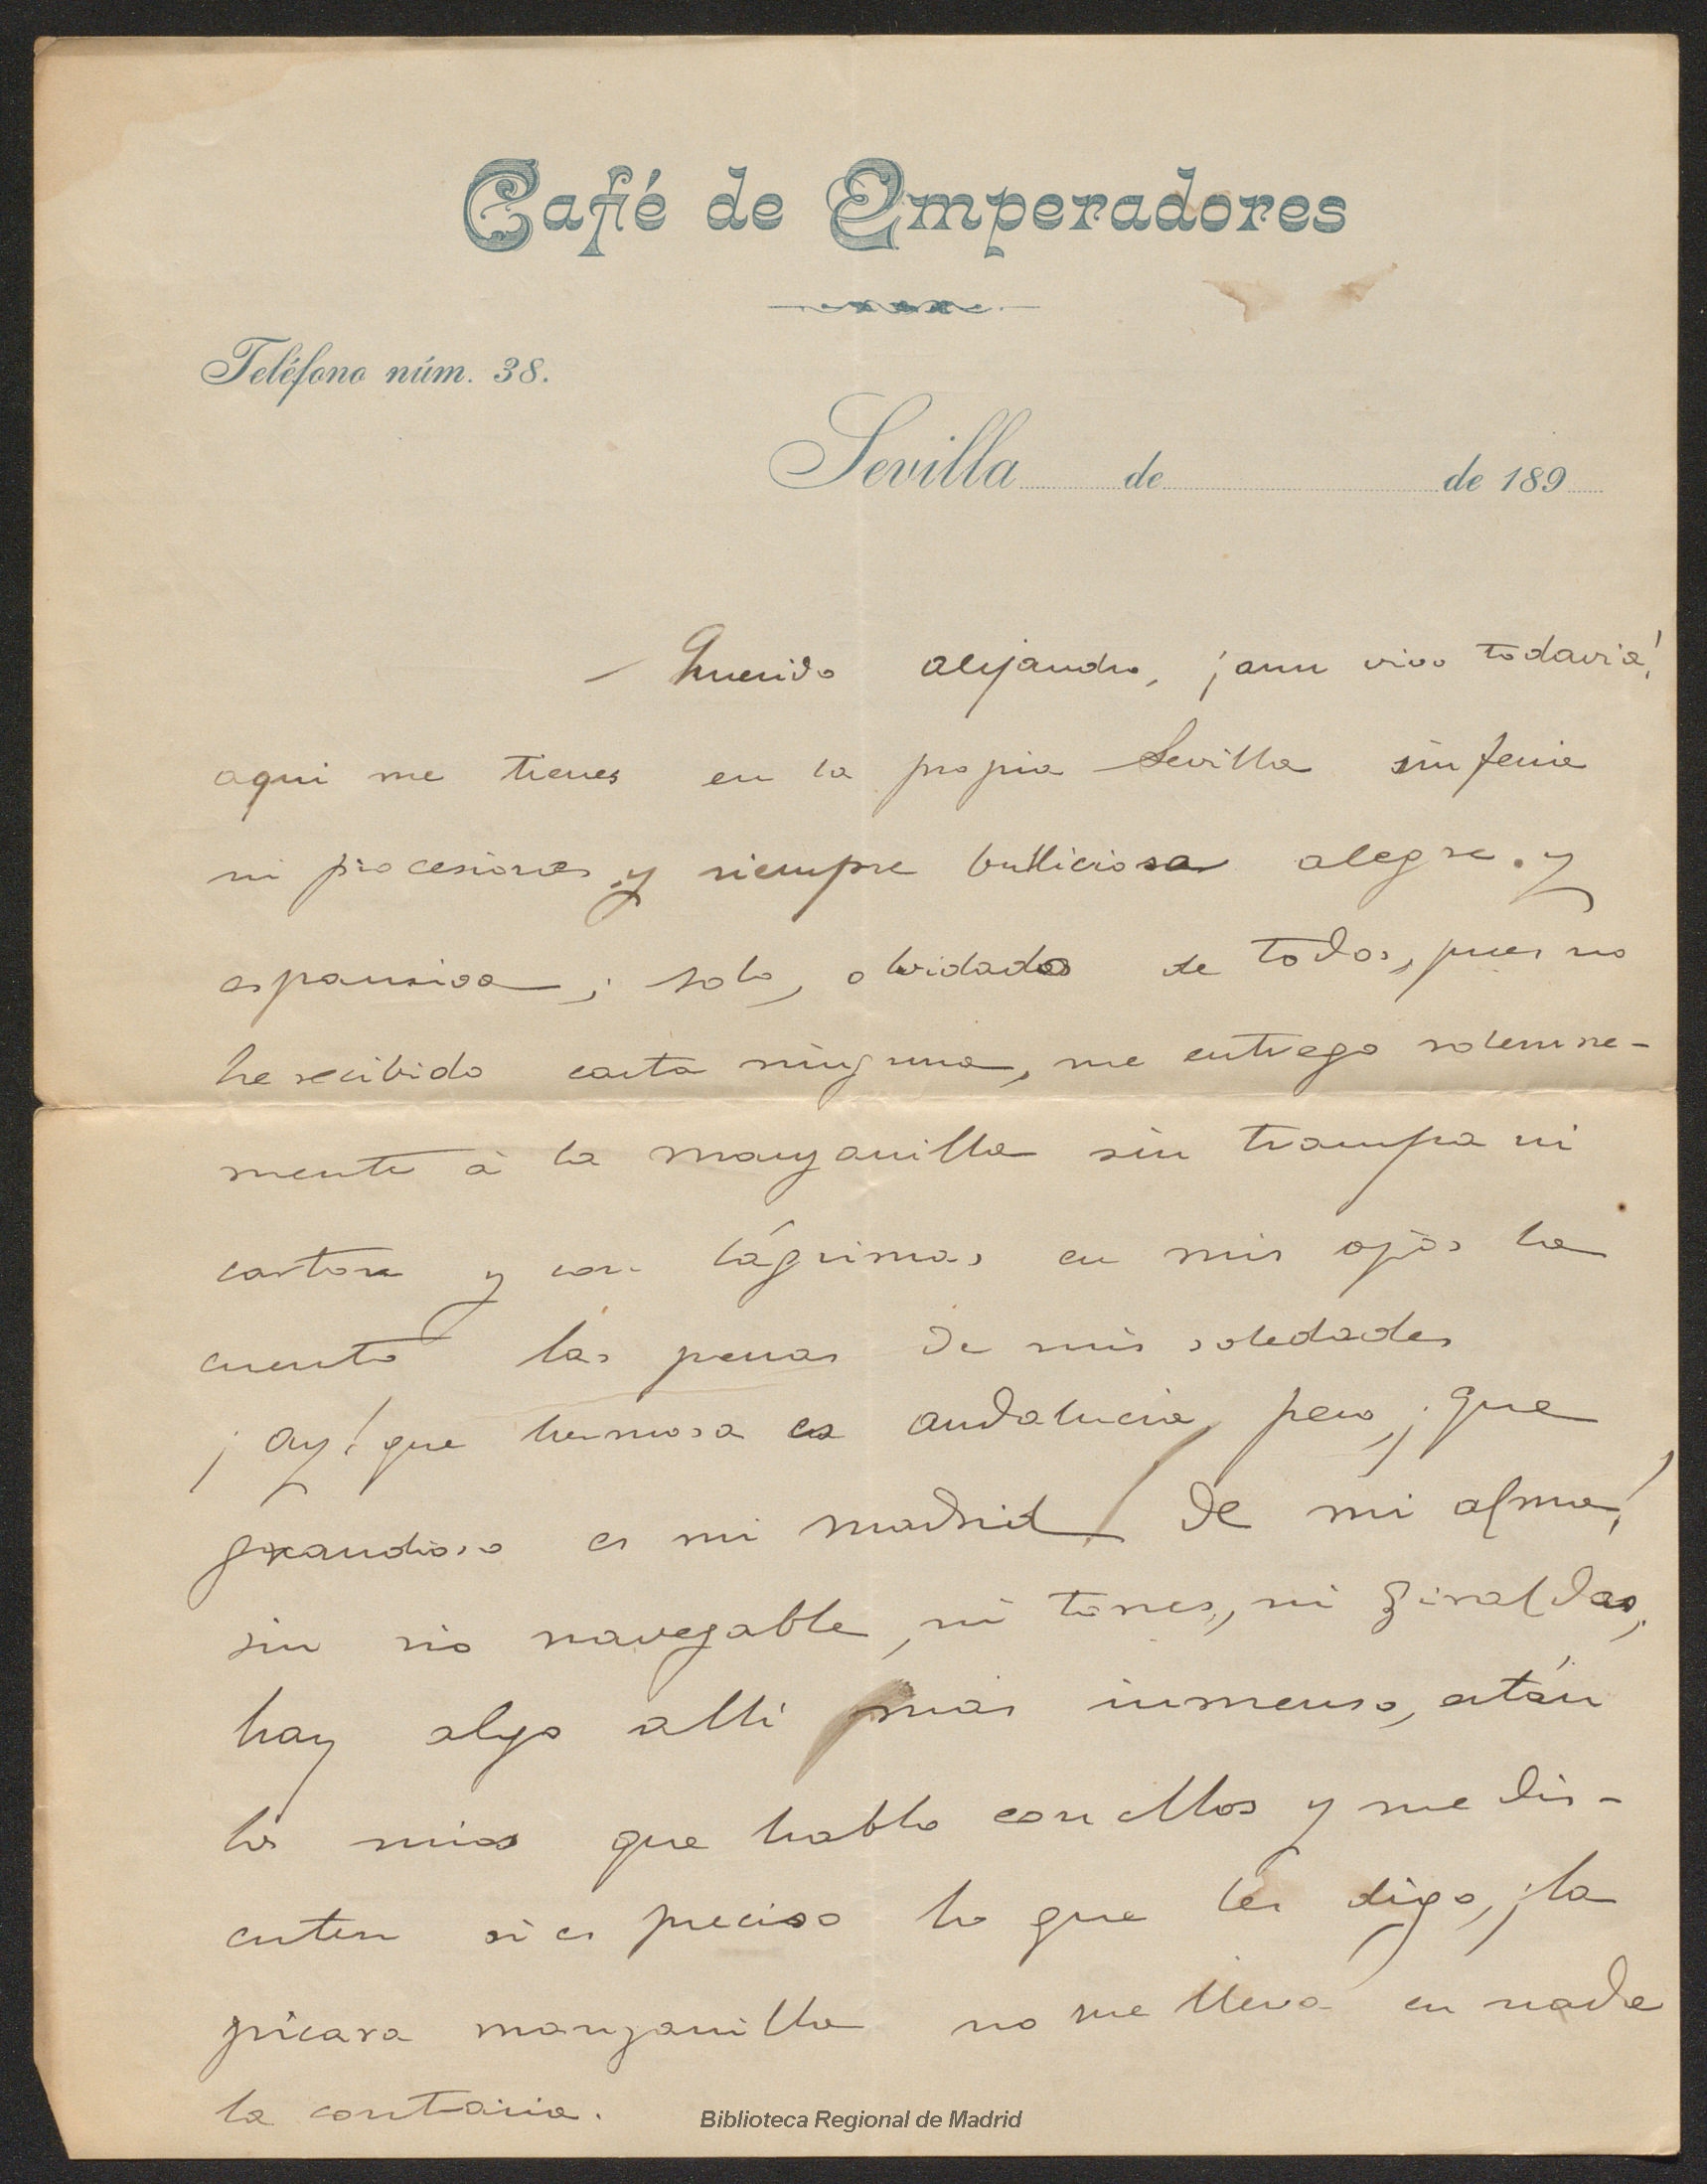 Café de Emperadores
Teléfono núm. 38.
Sevilla de de 189
Querido alejandro, ¡aun vivo todavia!
aqui me tienes en la propia Sevilla sin feria
ni procesiones y siempre bulliciosa alegre y
espansiva; solo, olvidado de todos, pues no
he recibido carta ninguna, me entrego solemne-
mente á la manzanilla sin trampa ni
carton y con lágrimas en mis ojos la
cuento las penas de mis soledades
¡ay! que hermosa es andalucia, pero, ¡que
grandioso es mi madrid de mi alma!
sin rio navegable, ni torres, ni giraldas,
hay algo alli mas inmenso, están
los mios que hablo con ellos y me dis-
cuten si es preciso lo que les digo, ¡la
picara manzanilla no me lleva en nada
la contraria.
Biblioteca Regional de Madrid